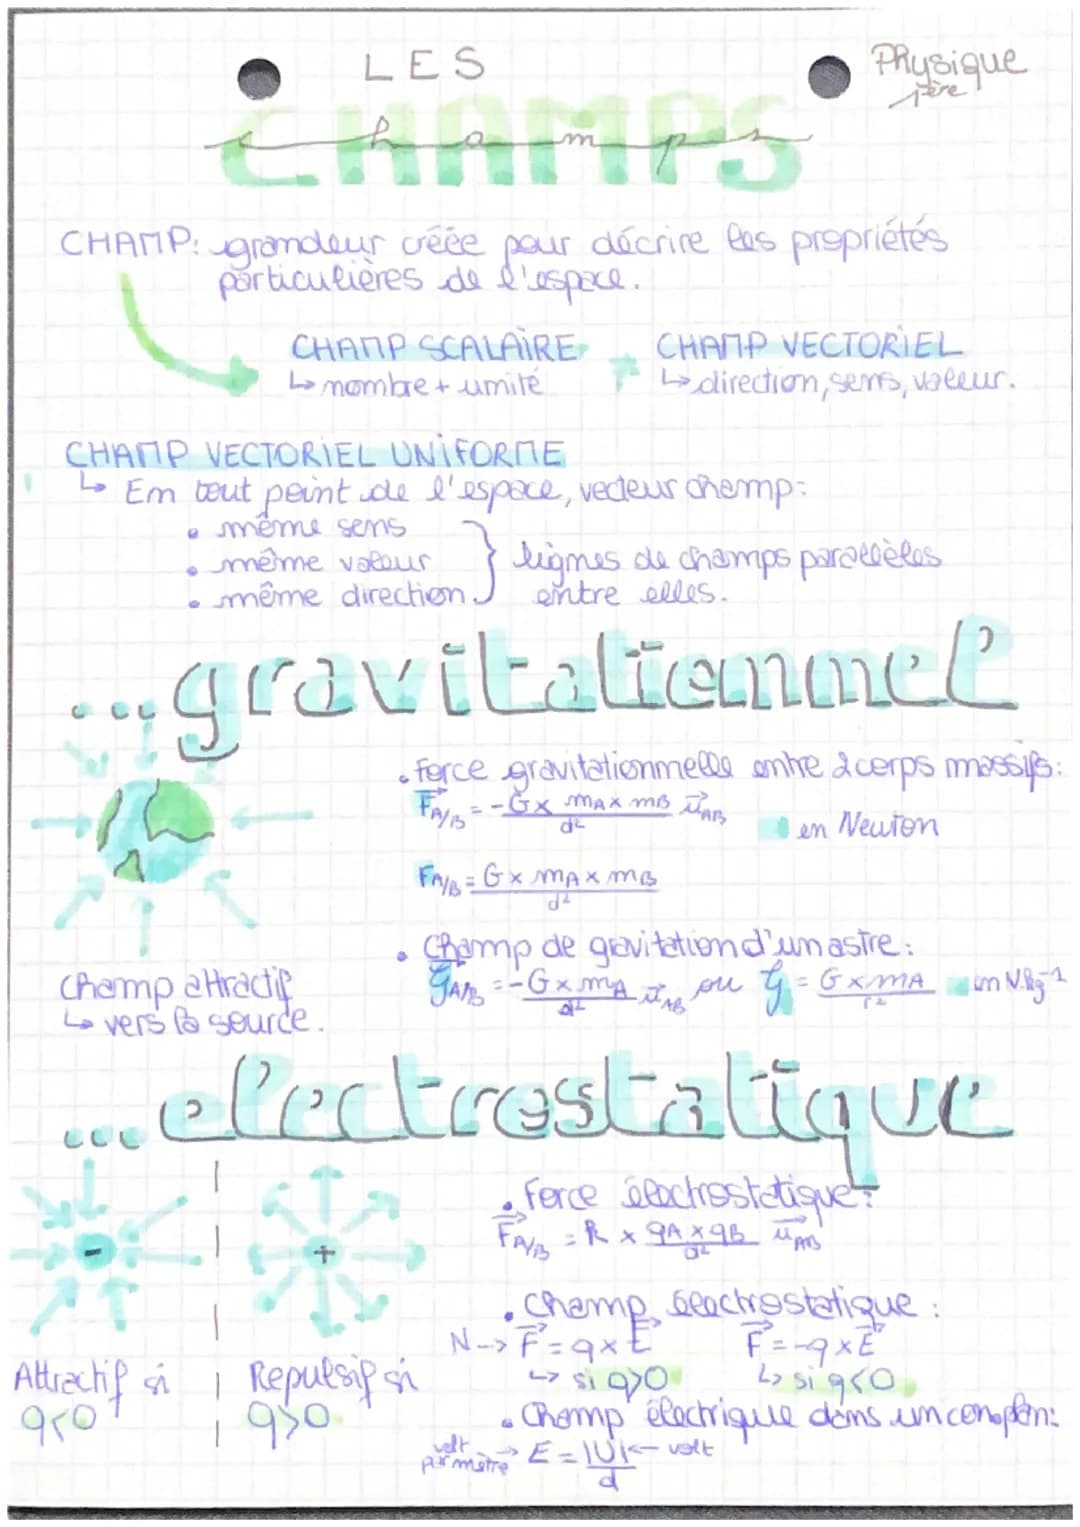 LES
Physique
1ère
CHAMPS
champs
CHAMP: grandeur créée pour décrire les propriétés
particulières de l'espace.
CHAMP SCALAIRE
CHAMP VECTORIEL
↳ nombre + unité
↳ direction, sens, valeur.
CHAMP VECTORIEL UNIFORME
↳ En tout point de l'espace, vecteur champ:
• même sens
• même valeur
• même direction
} lignes de champs parallèles
entre elles.
...gravitationnel
• Force gravitationnelle entre 2 corps massifs:
F⃗A/B = -G × mA × mB / d² u⃗AB
en Newton
FA/B = G × mA × mB / d²
• Champ de gravitation d'un astre:
G⃗A/B = -G × mA / d² u⃗AB ou G = G × mA / r² en N.kg⁻¹
Champ attractif
↳ vers la source.
...electrostatique
• Force électrostatique:
F⃗A/B = k × qA × qB / d² u⃗AB
-
+
• Champ électrostatique:
N → F⃗ = q × E⃗
F⃗ = -q × E⃗
↳ si q>0
↳ si q<0
Attractif si
q<0
Repulsif si
q>0
• Champ électrique dans un conden:
volt par mètre → E = |U| / d ← volt